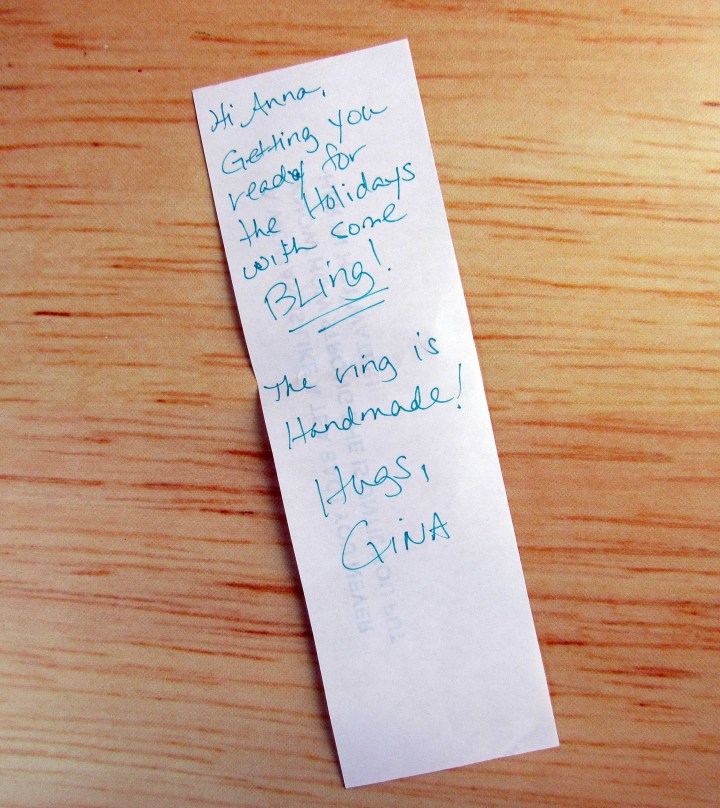 Hi Anna,
Getting you
ready for
the Holidays
with some
BLing!
The ring is
Handmade!
Hugs,
GiNA